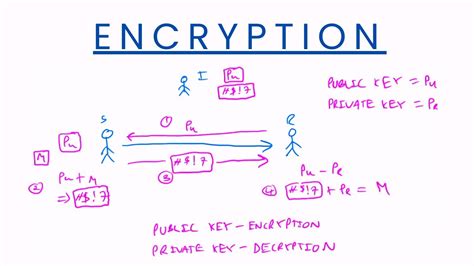 ENCRYPTION
I Pu
#$!7
PUBLIC KEY = Pu
PRIVATE KEY = PR
S ① Pu R
M Pu
#$!7
③
② Pu + M
⇒ #$!7
Pu - PR
④ #$!7 + PR = M
PUBLIC KEY - ENCRYPTION
PRIVATE KEY - DECRYPTION